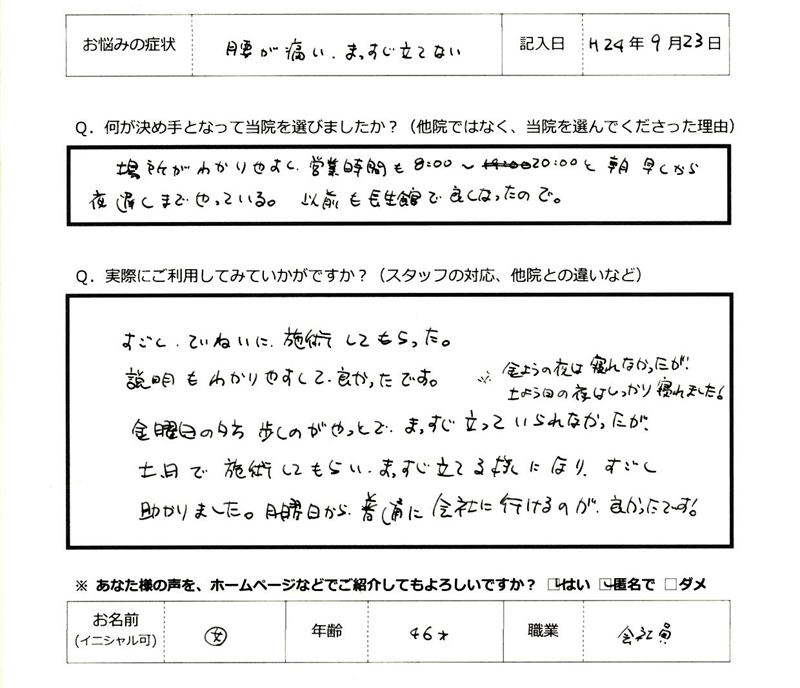 お悩みの症状 腰が痛い、まっすぐ立てない 記入日 H24年9月23日
Q．何が決め手となって当院を選びましたか？（他院ではなく、当院を選んでくださった理由）
場所がわかりやすく、営業時間も8:00〜19:00 20:00と朝早くから
夜遅くまでやっている。以前も長生館で良くなったので。
Q．実際にご利用してみていかがですか？（スタッフの対応、他院との違いなど）
すごく、ていねいに、施術してもらった。
説明もわかりやすくて、良かったです。
※ 金ようの夜は寝れなかったが、
土よう日の夜はしっかり寝れました！
金曜日の夕方歩くのがやっとで、まっすぐ立っていられなかったが、
土日で施術してもらい、まっすぐ立てる様になり、すごく
助かりました。月曜日から、普通に会社に行けるのが、良かったです！
※ あなた様の声を、ホームページなどでご紹介してもよろしいですか？ ☑はい ☑匿名で □ダメ
お名前
(イニシャル可) 女 年齢 46才 職業 会社員